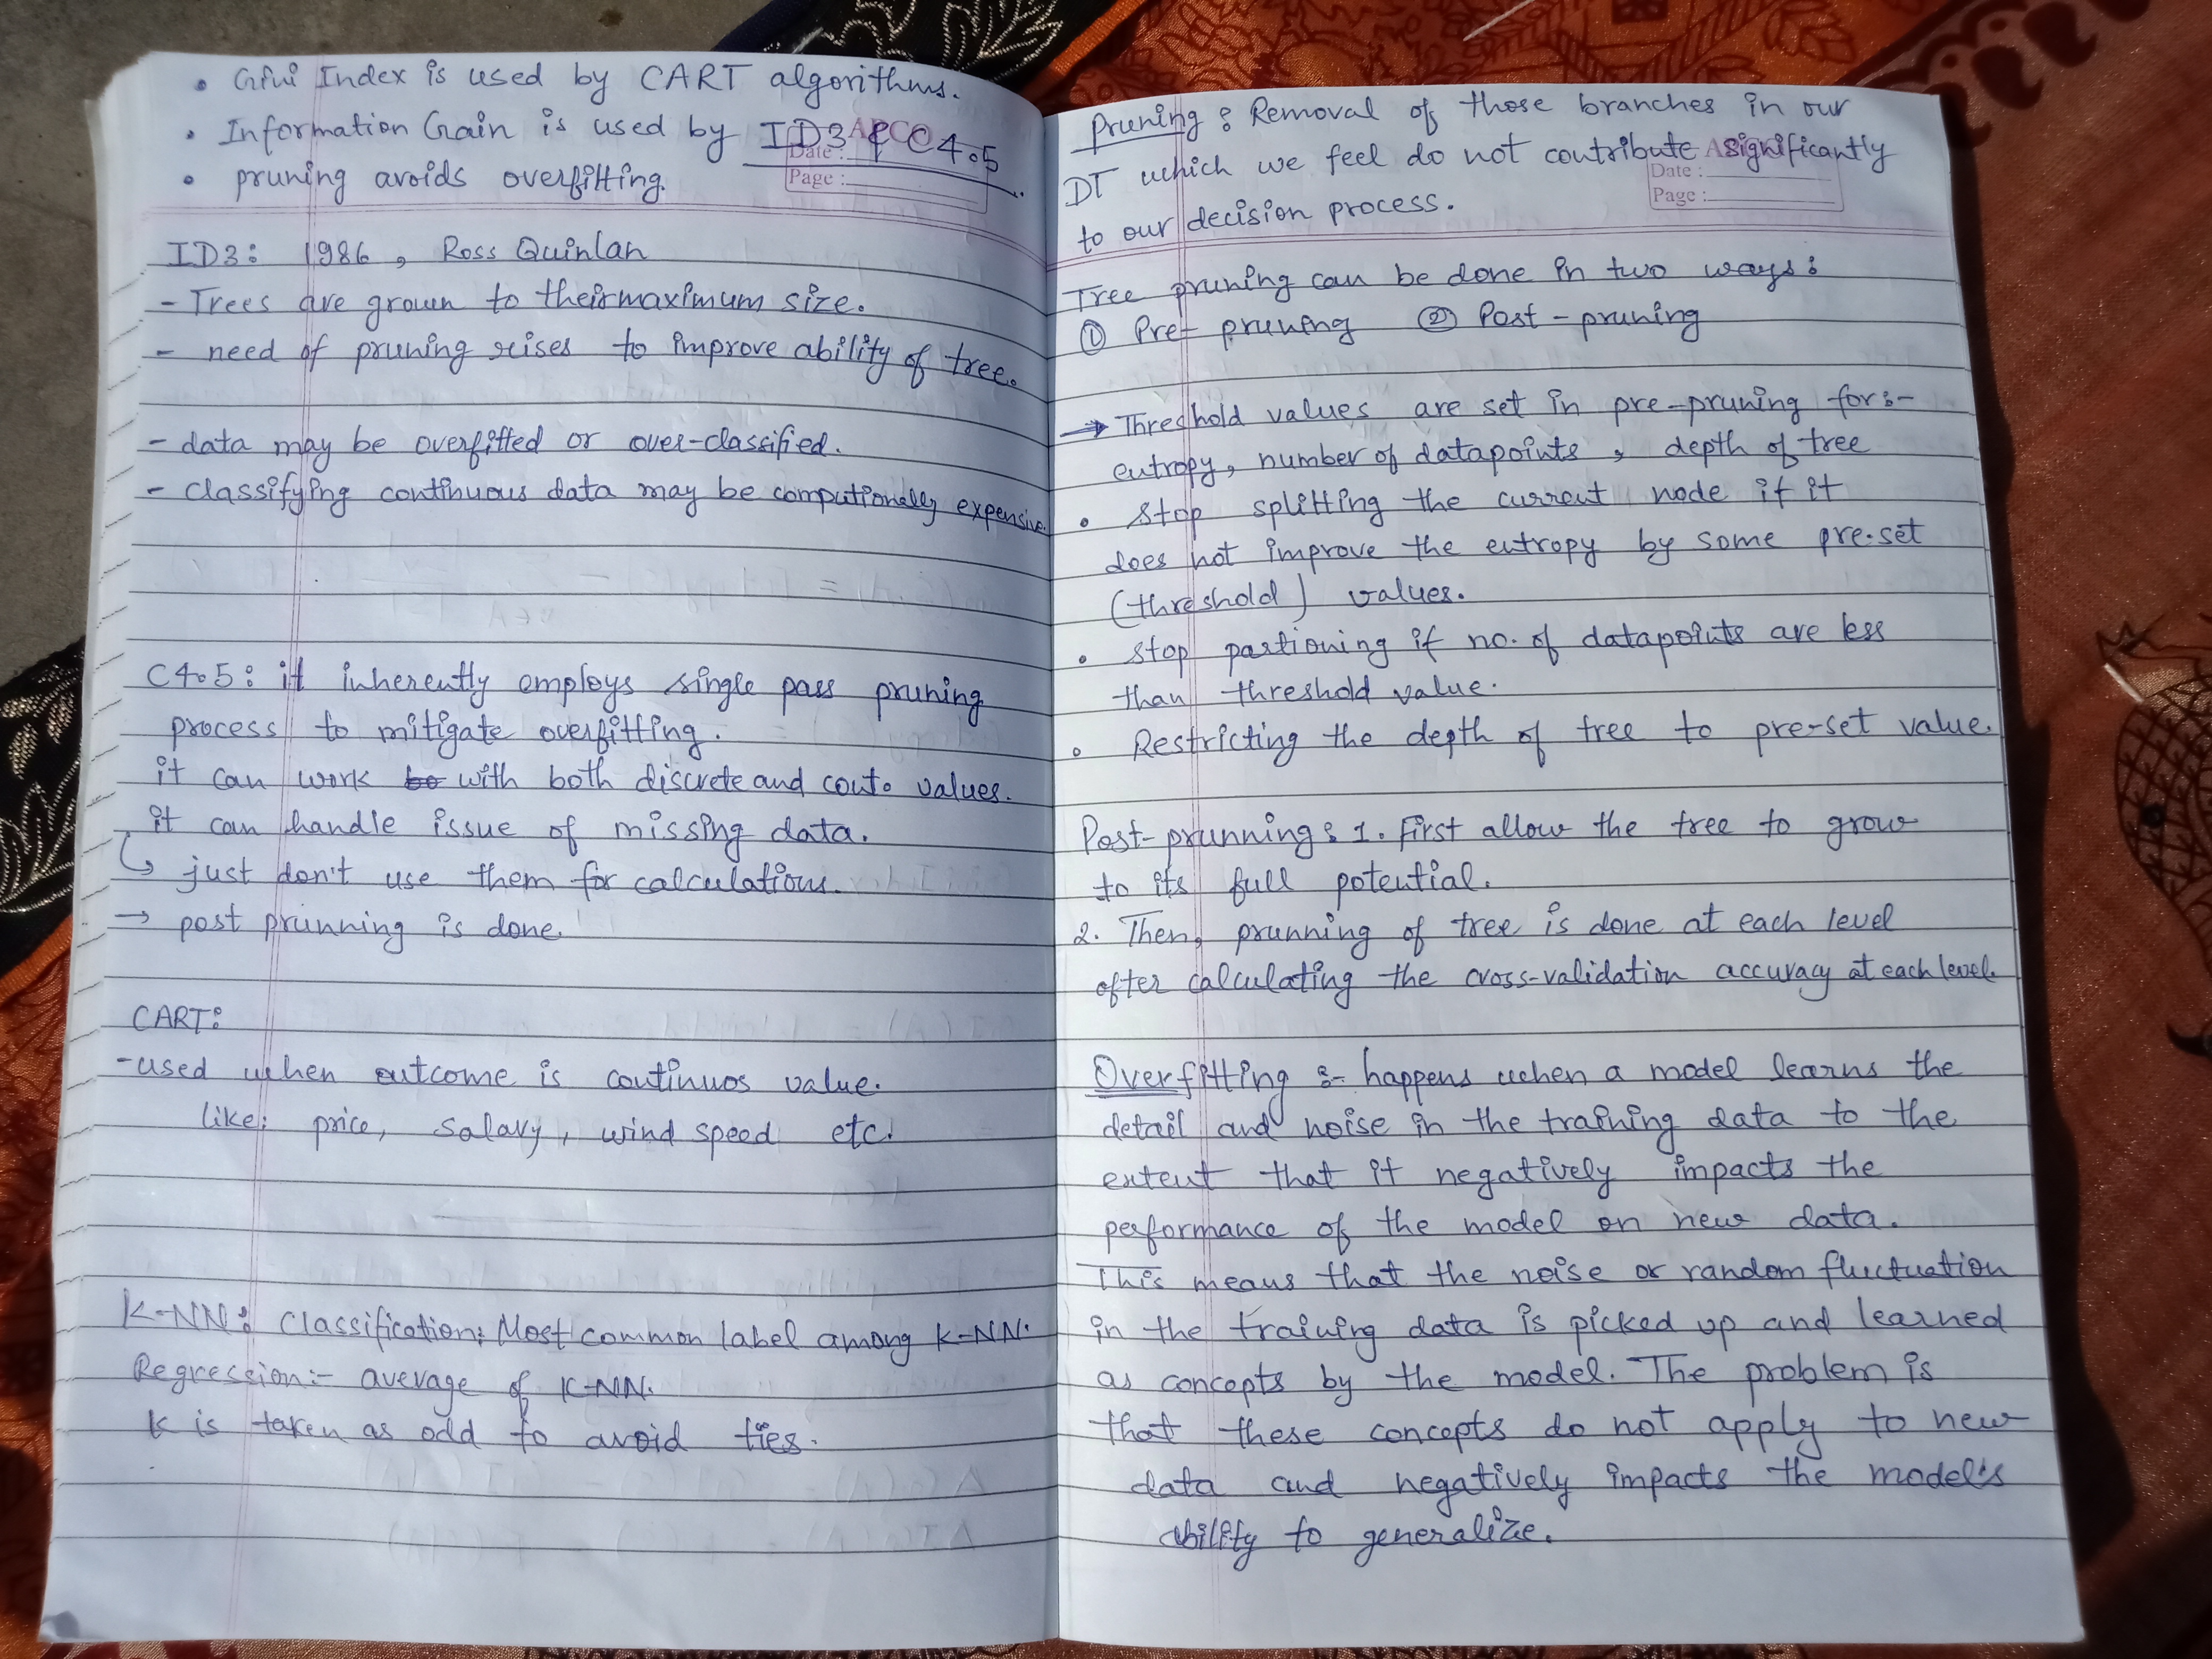 • Gini Index is used by CART algorithms.
• Information Gain is used by ID3 & C4.5
• pruning avoids overfitting.
Date :
Page :
ID3: 1986, Ross Quinlan
- Trees are grown to their maximum size.
- need of pruning rises to improve ability of tree.
- data may be overfitted or over-classified.
- classifying continuous data may be computionally expensive.
C4.5: it inherently employs single pass pruning
process to mitigate overfitting.
it can work with both discrete and cont. values.
it can handle issue of missing data.
↳ just don't use them for calculations.
→ post prunning is done.
CART:
- used when outcome is continuos value.
like: price, salary, wind speed etc.
K-NN: Classification: Most common label among K-NN.
Regression:- average of K-NN.
K is taken as odd to avoid ties.
Pruning : Removal of those branches in our
DT which we feel do not contribute significantly
to our decision process.
Date :
Page :
Tree pruning can be done in two ways:
① Pre-pruning ② Post-pruning
→ Threshold values are set in pre-pruning for:-
entropy, number of datapoints, depth of tree
• Stop splitting the current node if it
does not improve the entropy by some pre-set
(threshold) values.
• Stop partioning if no. of datapoints are less
than threshold value.
• Restricting the depth of tree to pre-set value.
Post-prunning: 1. First allow the tree to grow
to its full potential.
2. Then, prunning of tree is done at each level
after calculating the cross-validation accuracy at each level.
Overfitting :- happens when a model learns the
detail and noise in the training data to the
extent that it negatively impacts the
performance of the model on new data.
This means that the noise or random fluctuation
in the training data is picked up and learned
as concepts by the model. The problem is
that these concepts do not apply to new
data and negatively impacts the model's
ability to generalize.